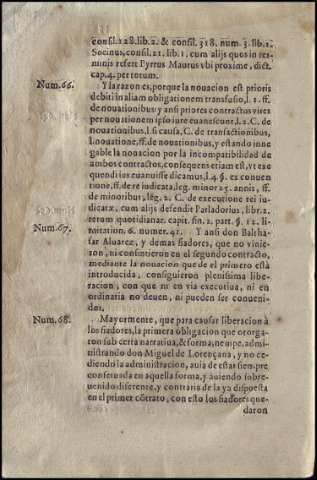 consil.128.lib.2. & consil.318. num.3.lib.1.
Socinus, consil.21. lib.1. cum alijs quos in ter-
minis refert Pyrrus Maurus vbi proxime, dict.
cap.4. per totum.
Num.66.
Y la razon es, porque la nouacion est prioris
debiti in aliam obligationem transfusio, l.1. ff.
de nouationibus y ansi priores contractus vires
per nouationem ipso iure euanescunt, l.2. C. de
nouationibus, l. si causa, C. de transactionibus,
l. nouatione, ff. de nouationibus, y estando inne-
gable la nouacion por la incompatibilidad de
ambos contractos, consequens etiam est, vt ex e
quendi ius euanuisse dicamus, l.4. §. es conuen
tione, ff. de re iudicata, leg. minor 25. annis, ff.
de minoribus, leg. 2. C. de executione rei iu-
dicatæ, cum alijs defendit Parladorius, libr.2.
rerum quotidianar. capit. fin. 2. part. §. 12. li-
Num.67.
mitation. 6. numer. 41. Y ansi don Baltha-
sar Aluarez, y demas fiadores, que no vinie-
ron, ni consintieron en el segundo contracto,
mediante la nouacion que de el primero està
introducida, consiguieron plenissima libera-
cion, con que ni en via executiua, ni en
ordinaria no deuen, ni pueden ser conueni-
dos.
Num.68.
Mayormente, que para causar liberacion à
los fiadores, la primera obligacion que otorga-
ron sub certa narratiua, & forma, nempe, admi-
nistrando don Miguel de Lorençana, y no ce-
diendo la administracion, auia de estar siempre
conseruada en aquella forma, y auiendo sobre-
uenido diferente, y contraria de la ya dispuesta
en el primer cõtrato, con esto los fiadores que-
daron